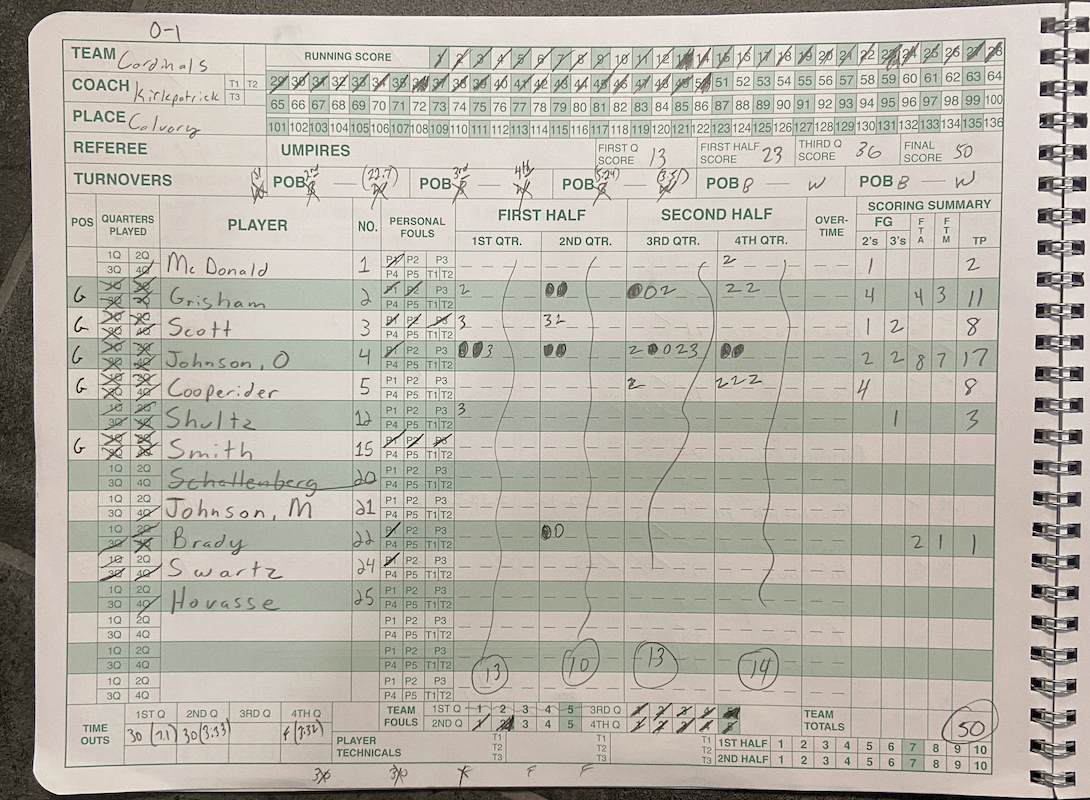 0-1
TEAM Cardinals RUNNING SCORE 1 2 3 4 5 6 7 8 9 10 11 12 13 14 15 16 17 18 19 20 21 22 23 24 25 26 27 28
COACH Kirkpatrick T1 T2 T3 29 30 31 32 33 34 35 36 37 38 39 40 41 42 43 44 45 46 47 48 49 50 51 52 53 54 55 56 57 58 59 60 61 62 63 64
65 66 67 68 69 70 71 72 73 74 75 76 77 78 79 80 81 82 83 84 85 86 87 88 89 90 91 92 93 94 95 96 97 98 99 100
PLACE Calvory 101 102 103 104 105 106 107 108 109 110 111 112 113 114 115 116 117 118 119 120 121 122 123 124 125 126 127 128 129 130 131 132 133 134 135 136
REFEREE UMPIRES FIRST Q SCORE 13 FIRST HALF SCORE 23 THIRD Q SCORE 36 FINAL SCORE 50
TURNOVERS POB 2nd (22.7) POB 3rd 4th POB (5:24) (3:51) POB B — W POB B — W
POS QUARTERS PLAYED PLAYER NO. PERSONAL FOULS FIRST HALF SECOND HALF OVER-TIME SCORING SUMMARY
1ST QTR. 2ND QTR. 3RD QTR. 4TH QTR. FG 2's 3's FTA FTM TP
1Q 2Q 3Q 4Q McDonald 1 P1 P2 P3 P4 P5 T1 T2 2 1 2
G 1Q 2Q 3Q 4Q Grisham 2 P1 P2 P3 P4 P5 T1 T2 2 00 002 22 4 4 3 11
G 1Q 2Q 3Q 4Q Scott 3 P1 P2 P3 P4 P5 T1 T2 3 32 1 2 8
G 1Q 2Q 3Q 4Q Johnson, O 4 P1 P2 P3 P4 P5 T1 T2 003 00 20023 00 2 2 8 7 17
G 1Q 2Q 3Q 4Q Cooperider 5 P1 P2 P3 P4 P5 T1 T2 2 222 4 8
1Q 2Q 3Q 4Q Shultz 12 P1 P2 P3 P4 P5 T1 T2 3 1 3
G 1Q 2Q 3Q 4Q Smith 15 P1 P2 P3 P4 P5 T1 T2
1Q 2Q 3Q 4Q Schallenberg 20 P1 P2 P3 P4 P5 T1 T2
1Q 2Q 3Q 4Q Johnson, M 21 P1 P2 P3 P4 P5 T1 T2
1Q 2Q 3Q 4Q Brady 22 P1 P2 P3 P4 P5 T1 T2 00 2 1 1
1Q 2Q 3Q 4Q Swartz 24 P1 P2 P3 P4 P5 T1 T2
1Q 2Q 3Q 4Q Hovasse 25 P1 P2 P3 P4 P5 T1 T2
1Q 2Q 3Q 4Q P1 P2 P3 P4 P5 T1 T2
1Q 2Q 3Q 4Q P1 P2 P3 P4 P5 T1 T2 13 10 13 14
1Q 2Q 3Q 4Q P1 P2 P3 P4 P5 T1 T2
TIME OUTS 1ST Q 2ND Q 3RD Q 4TH Q TEAM FOULS 1ST Q 1 2 3 4 5 3RD Q 1 2 3 4 5 TEAM TOTALS 50
30 (7.1) 30 (3:33) F (7:32) 2ND Q 1 2 3 4 5 4TH Q 1 2 3 4 5
PLAYER TECHNICALS T1 T2 T3 T1 T2 T3 1ST HALF 1 2 3 4 5 6 7 8 9 10
2ND HALF 1 2 3 4 5 6 7 8 9 10
30 30 F F F